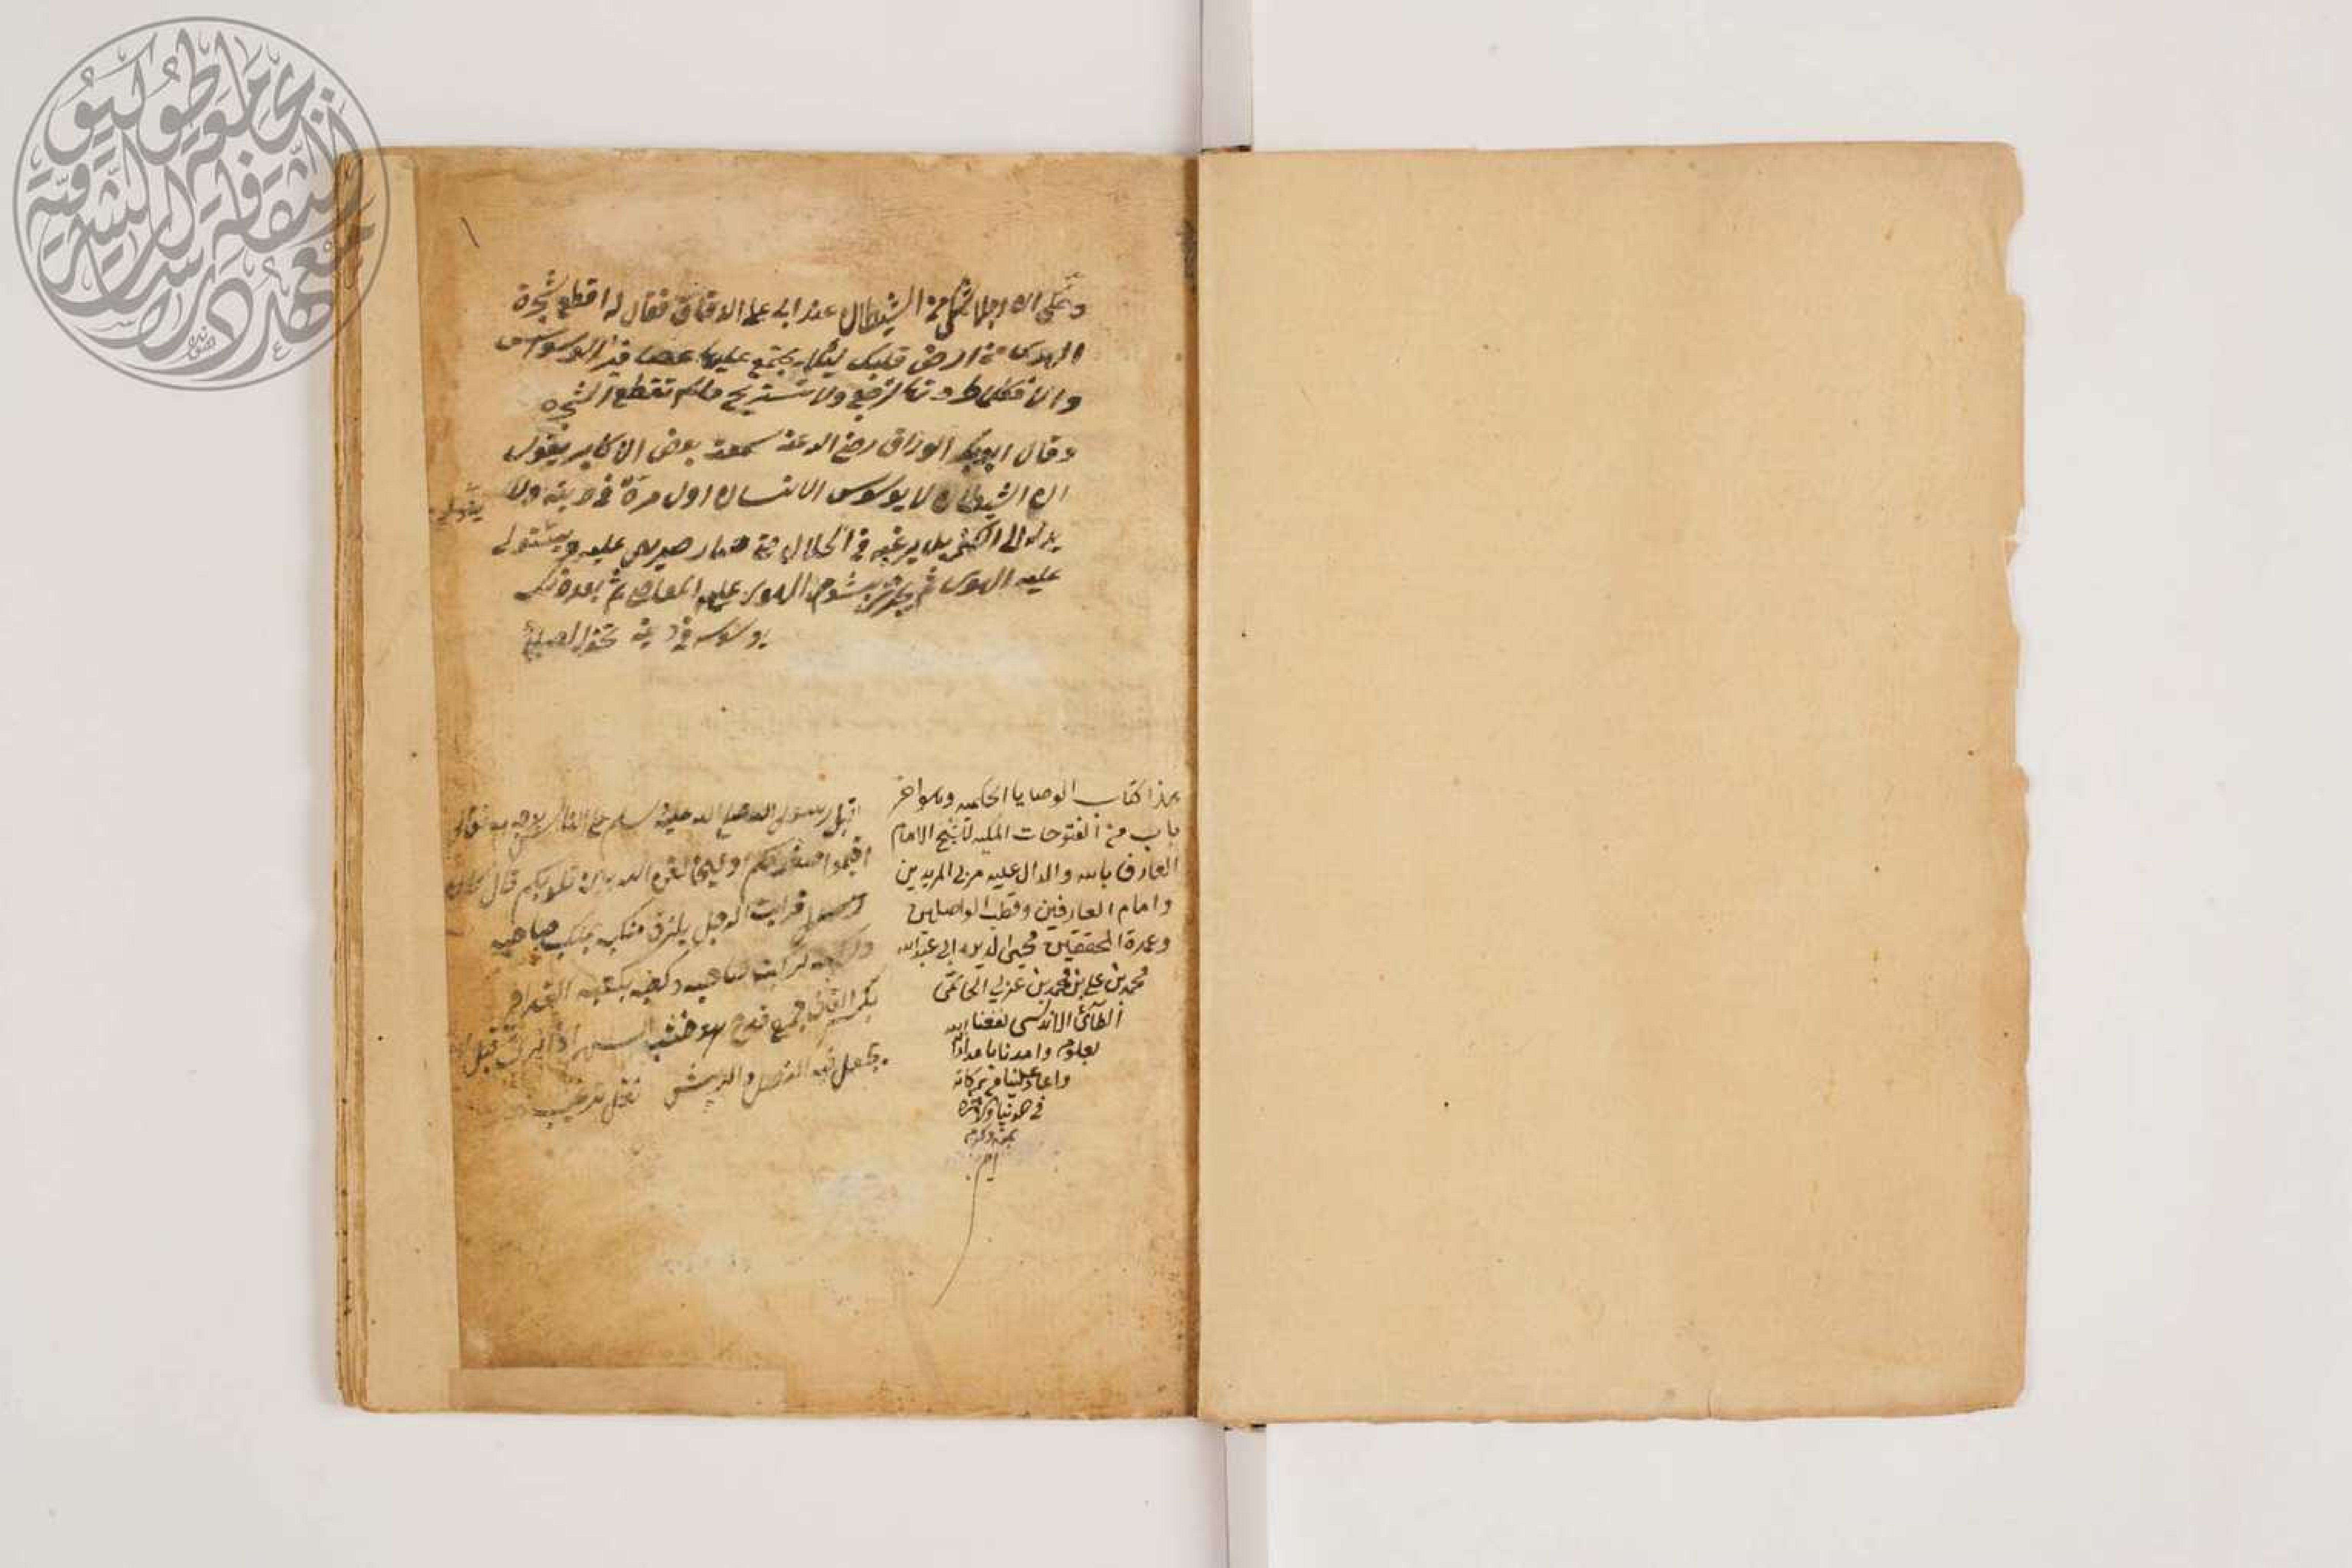 وحكي ان رجلا شكى من الشيطان عند ابي علي الدقاق فقال له اقطع شجرة
الهوى من ارض قلبك ليلا يجتمع عليها عصافير الوسواس
والا فكلما طردتها ترجع ولا تستريح مالم تقطع الشجرة
وقال ابوبكر الوراق رضي الله عنه سمعت بعض الاكابر يقول
ان الشيطان لا يوسوس الانسان اول مرة في دينه ولا
يدله الى الكفر بل يرغبه في الحلال حتى صار حريص عليه ويستولى
عليه الهوى ثم بشوم الهوى على المعاصي ثم بعد ذلك
يوسوسه في دينه
هذا كتاب الوصايا الحاتميه وهو اخر
باب من الفتوحات المكيه للشيخ الامام
العارف بالله والدال عليه مربي المريدين
وامام العارفين وقطب الواصلين
وعمدة المحققين محيي الدين ابي عبدالله
محمد بن علي بن محمد بن عربي الحاتمي
الطائي الاندلسي نفعنا الله
بعلومه وامدنا بامداداته
واعاد علينا من بركاته
في الدنيا والاخرة
بمنه وكرمه
امين
اقبل رسول الله صلى الله عليه وسلم على الناس بوجهه فقال
اقيموا صفوفكم او ليخالفن الله بين قلوبكم قال
فرايت الرجل يلزق منكبه بمنكب صاحبه
وركبته بركبة صاحبه وكعبه بكعبه القداح
بكسر القاف جمع قدح وهو خشب السهم اذا بري قبل ان
يجعل فيه النصل والريش